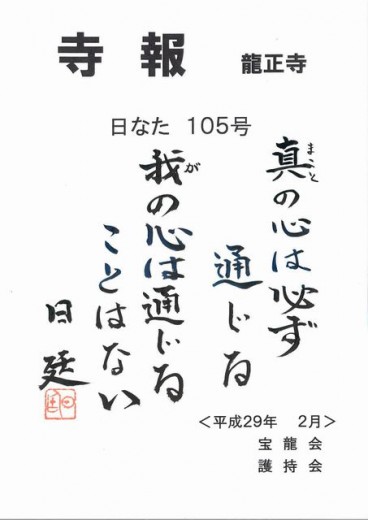 寺報 龍正寺
日なた 105号
真の心は必ず
まこと
通じる
我の心は通じる
が
ことはない
日廷
<平成29年 2月>
宝龍会
護持会